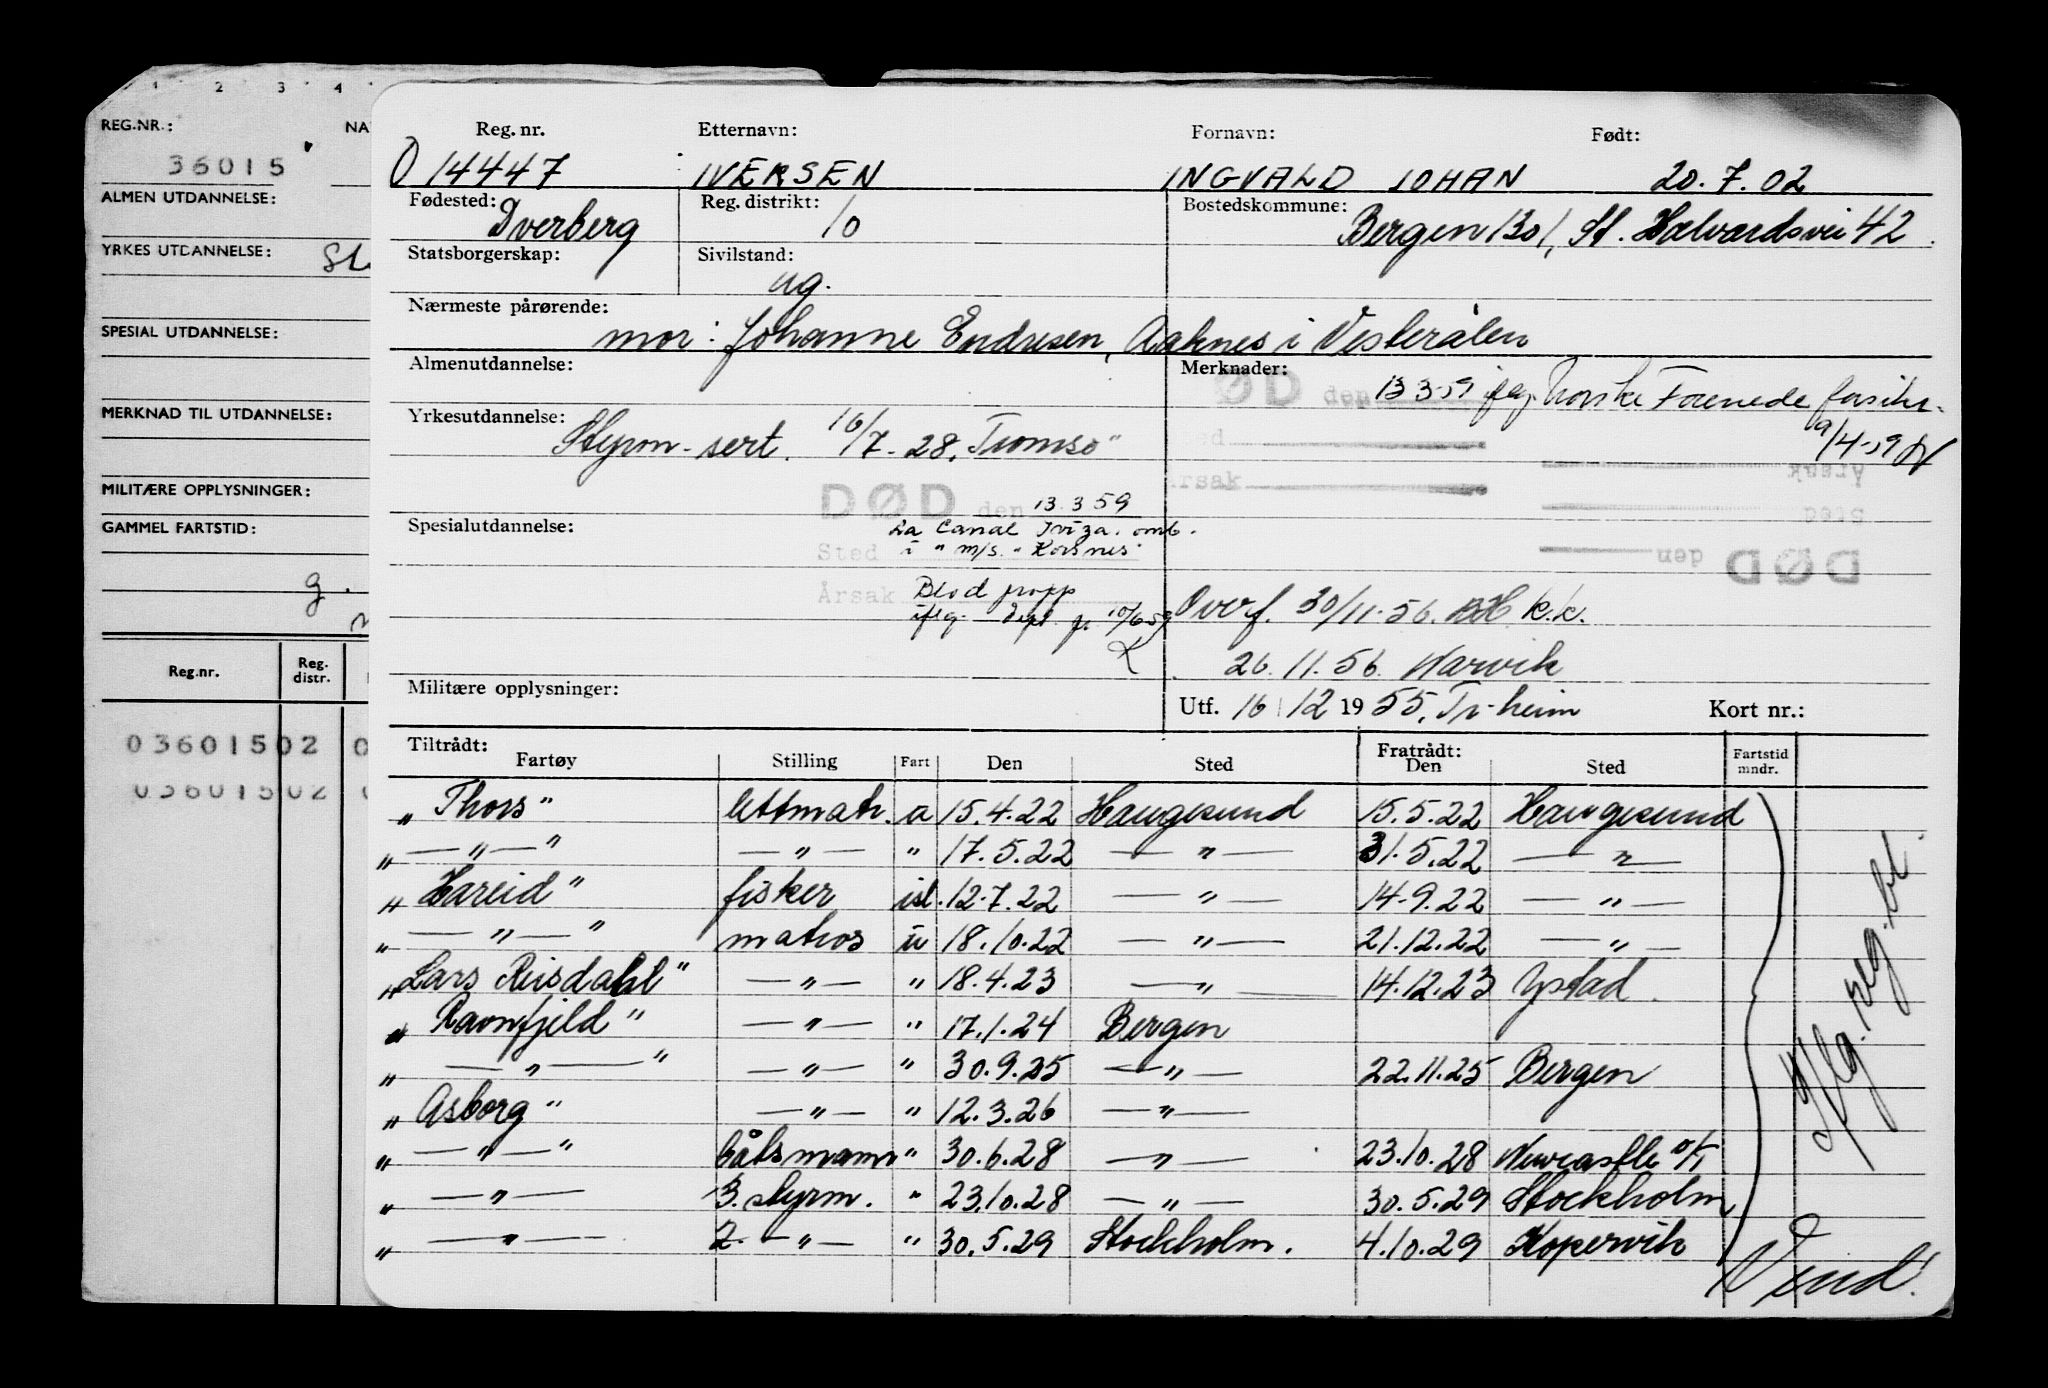 1 2 3 4
REG.NR.: NA
36015
ALMEN UTDANNELSE:
YRKES UTDANNELSE:
SPESIAL UTDANNELSE:
MERKNAD TIL UTDANNELSE:
MILITÆRE OPPLYSNINGER:
GAMMEL FARTSTID:
g.
Reg.nr. Reg. distr.
03601502 0
03601502
Reg. nr. Etternavn: Fornavn: Født:
O 14447 IVERSEN INGVALD JOHAN 20.7.02
Fødested: Dverberg Reg. distrikt: 10 Bostedskommune: Bergen 1301, St. Halvardsvei 42.
Statsborgerskap: Sivilstand: ug.
Nærmeste pårørende:
mor: Johanne Endresen, Aaknes i Vesterålen
Almenutdannelse: Merknader:
DØD den 13 3-59 iflg. Norske Forenede forsikr.
9/4-59
Yrkesutdannelse:
Styrm-sert. 16/7-28. Tromsø"
Årsak
Sted
DØD den
DØD den 13.3.59
Spesialutdannelse:
La Canal Iviza. omb.
Sted i "m/s." Korsnes
Årsak Blod propp
iflg. Dept. 10/6-59
K
Overf. 30/11-56. BH k.k.
26.11.56 Narvik
Militære opplysninger: Utf. 16/12 1955, Tr-heim Kort nr.:
Tiltrådt: Fartøy Stilling Fart Den Sted Fratrådt: Den Sted Fartstid mndr.
„ Thors" lettmatr. a 15.4.22 Haugesund 15.5.22 Haugesund
„ — " — " — " — " 17.5.22 — " — 31.5.22 — " —
„ Hareid" fisker isl. 12.7.22 — " — 14.9.22 — " —
„ — " — " matros u 18.10.22 — " — 21.12.22 — " —
„ Lars Reisdahl" — " — " 18.4.23 — " — 14.12.23 Ystad
„ Ravnfjeld" — " — " 17.1.24 Bergen
„ — " — " — " — " 30.9.25 — " — 22.11.25 Bergen
„ Asborg" — " — " 12.3.26 — " —
„ — " — " båtsmann " 30.6.28 — " — 23.10.28 Newcastle o/T
„ — " — 3. styrm. " 23.10.28 — " — 30.5.29 Stockholm
„ — " — 2. — " — " 30.5.29 Stockholm. 4.10.29 Kopervik
Iflg. reg. bl.
Vend!